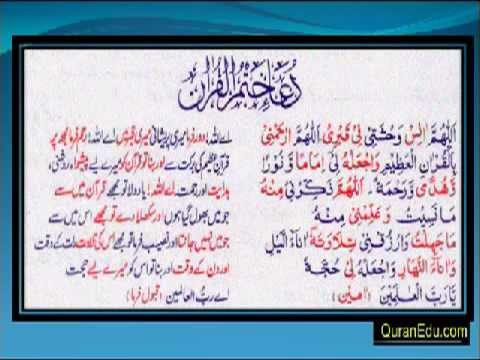 دُعَاءِ خَتْمِ الْقُرْآن
اَللّٰهُمَّ اٰنِسْ وَحْشَتِیْ فِیْ قَبْرِیْ اَللّٰهُمَّ ارْحَمْنِیْ
بِالْقُرْاٰنِ الْعَظِیْمِ وَاجْعَلْهُ لِیْ اِمَامًا وَّ نُوْرًا
وَّ هُدًی وَّ رَحْمَةً اَللّٰهُمَّ ذَكِّرْنِیْ مِنْهُ
مَا نَسِیْتُ وَعَلِّمْنِیْ مِنْهُ
مَا جَهِلْتُ وَارْزُقْنِیْ تِلَاوَتَهٗ اٰنَآءَ الَّیْلِ
وَاٰنَآءَ النَّهَارِ وَاجْعَلْهُ لِیْ حُجَّةً
یَّا رَبَّ الْعٰلَمِیْنَ (اٰمِیْن)
اے اللہ! دور فرما میری پریشانی میری قبر میں اے اللہ! رحم فرما مجھ پر
قرآن عظیم کی برکت سے اور بنا تو قرآن کو میرے لیے پیشوا، روشنی،
ہدایت اور رحمت اے اللہ! یاد دلا تو مجھے قرآن میں سے
جو میں بھول گیا ہوں اور سکھلا دے تو مجھے اس میں سے
جو میں نہیں جانتا اور نصیب فرما تو مجھے اس کی تلاوت رات کے وقت
اور دن کے وقت اور بنا تو اس کو میرے لیے حجت
اے رب العالمین (قبول فرما)
QuranEdu.com